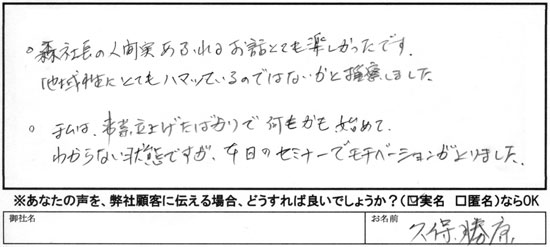 ○ 森社長の人間実あふれるお話とても楽しかったです.
地域性にとてもハマッているのではないかと推察しました
○ 私は、 立上げたばかりで何もかも始めて、
わからない状態ですが、本日のセミナーでモチベーションが上りました.
※あなたの声を、弊社顧客に伝える場合、どうすれば良いでしょうか?(☑実名 □匿名)ならOK
御社名
お名前
久保 勝